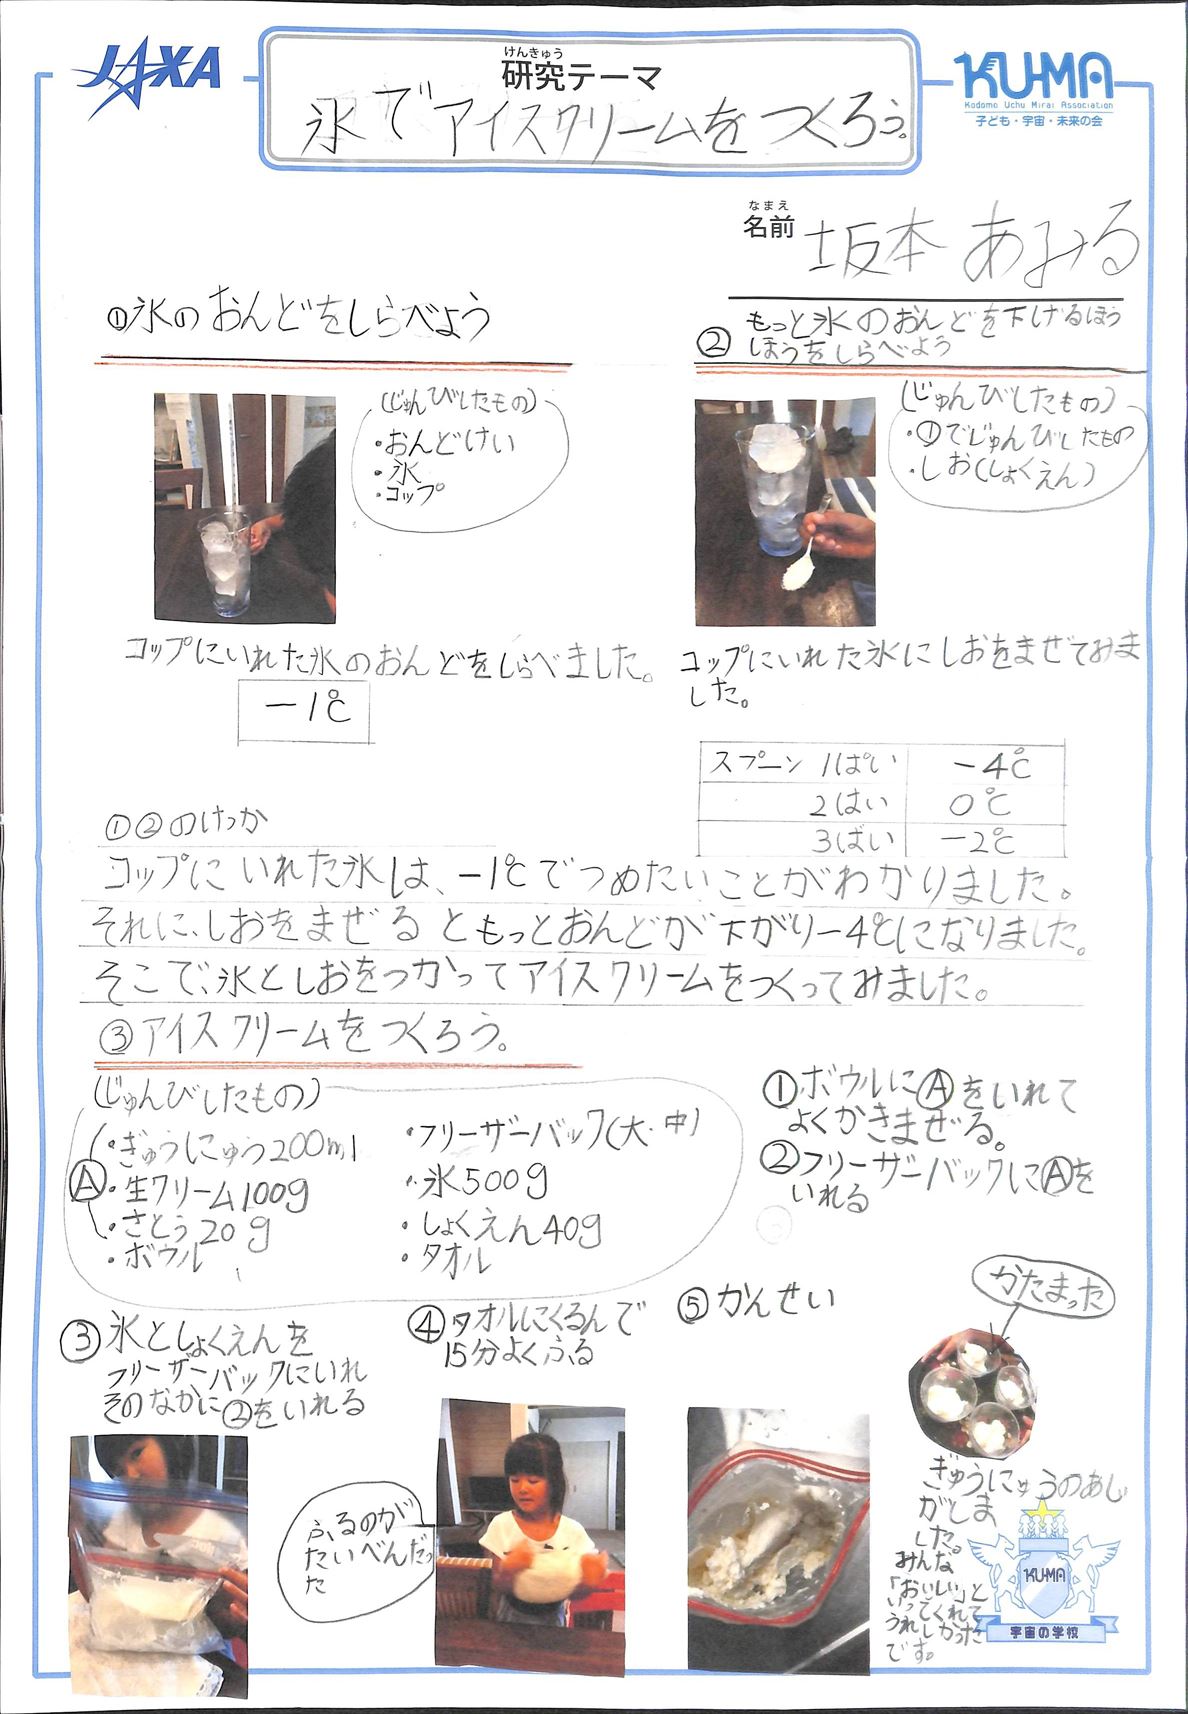 JAXA
けんきゅう
研究テーマ
氷でアイスクリームをつくろう。
KU-MA
Kodomo Uchu Mirai Association
子ども・宇宙・未来の会
なまえ
名前 坂本 あみる
①氷のおんどをしらべよう
(じゅんびしたもの)
・おんどけい
・氷
・コップ
コップにいれた氷のおんどをしらべました。
-1℃
② もっと氷のおんどを下げるほう
ほうをしらべよう
(じゅんびしたもの)
・①でじゅんびしたもの
・しお(しょくえん)
コップにいれた氷にしおをまぜてみま
した。
スプーン 1ぱい -4℃
2はい 0℃
3ばい -2℃
①②のけっか
コップにいれた氷は、-1℃でつめたいことがわかりました。
それに、しおをまぜるともっとおんどが下がり-4℃になりました。
そこで、氷としおをつかってアイスクリームをつくってみました。
③アイスクリームをつくろう。
(じゅんびしたもの)
Ⓐ
・ぎゅうにゅう200ml
・生クリーム100g
・さとう20g
・ボウル
・フリーザーバック(大・中)
・氷500g
・しょくえん40g
・タオル
①ボウルにⒶをいれて
よくかきまぜる。
②フリーザーバックにⒶを
いれる
③ 氷としょくえんを
フリーザーバックにいれ
そのなかに②をいれる
④タオルにくるんで
15分よくふる
ふるのが
たいへんだっ
た
⑤かんせい
かたまった
ぎゅうにゅうのあじ
がしま
した。
みんな
「おいしい」と
いってくれて
うれしかった
です。
KU-MA
宇宙の学校